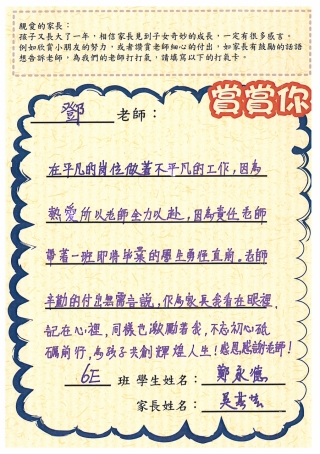 親愛的家長：
孩子又長大了一年，相信家長見到子女奇妙的成長，一定有很多感言。
例如欣賞小朋友的努力，或者讚賞老師細心的付出，如家長有鼓勵的話語
想告訴老師，為我們的老師打打氣，請填寫以下的打氣卡。
賞賞你
鄧 老師：
在平凡的崗位做著不平凡的工作，因為
熱愛所以老師全力以赴，因為責任老師
帶著一班即將畢業的學生勇往直前。老師
辛勤的付出無需音說，作為家長我看在眼裡，
記在心裡，同樣也激勵著我，不忘初心砥
礪前行，為孩子夫創輝煌人生！感恩感謝老師！
6E 班 學生姓名： 鄭永德
家長姓名： 吳